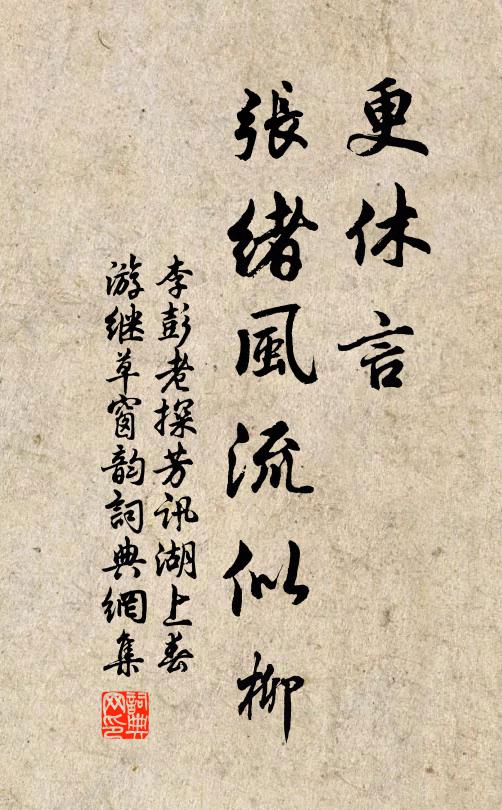 更休言
張緒風流似柳
李彭老探芳訊湖上春
游继草窗韵詞典網集
詞典网印